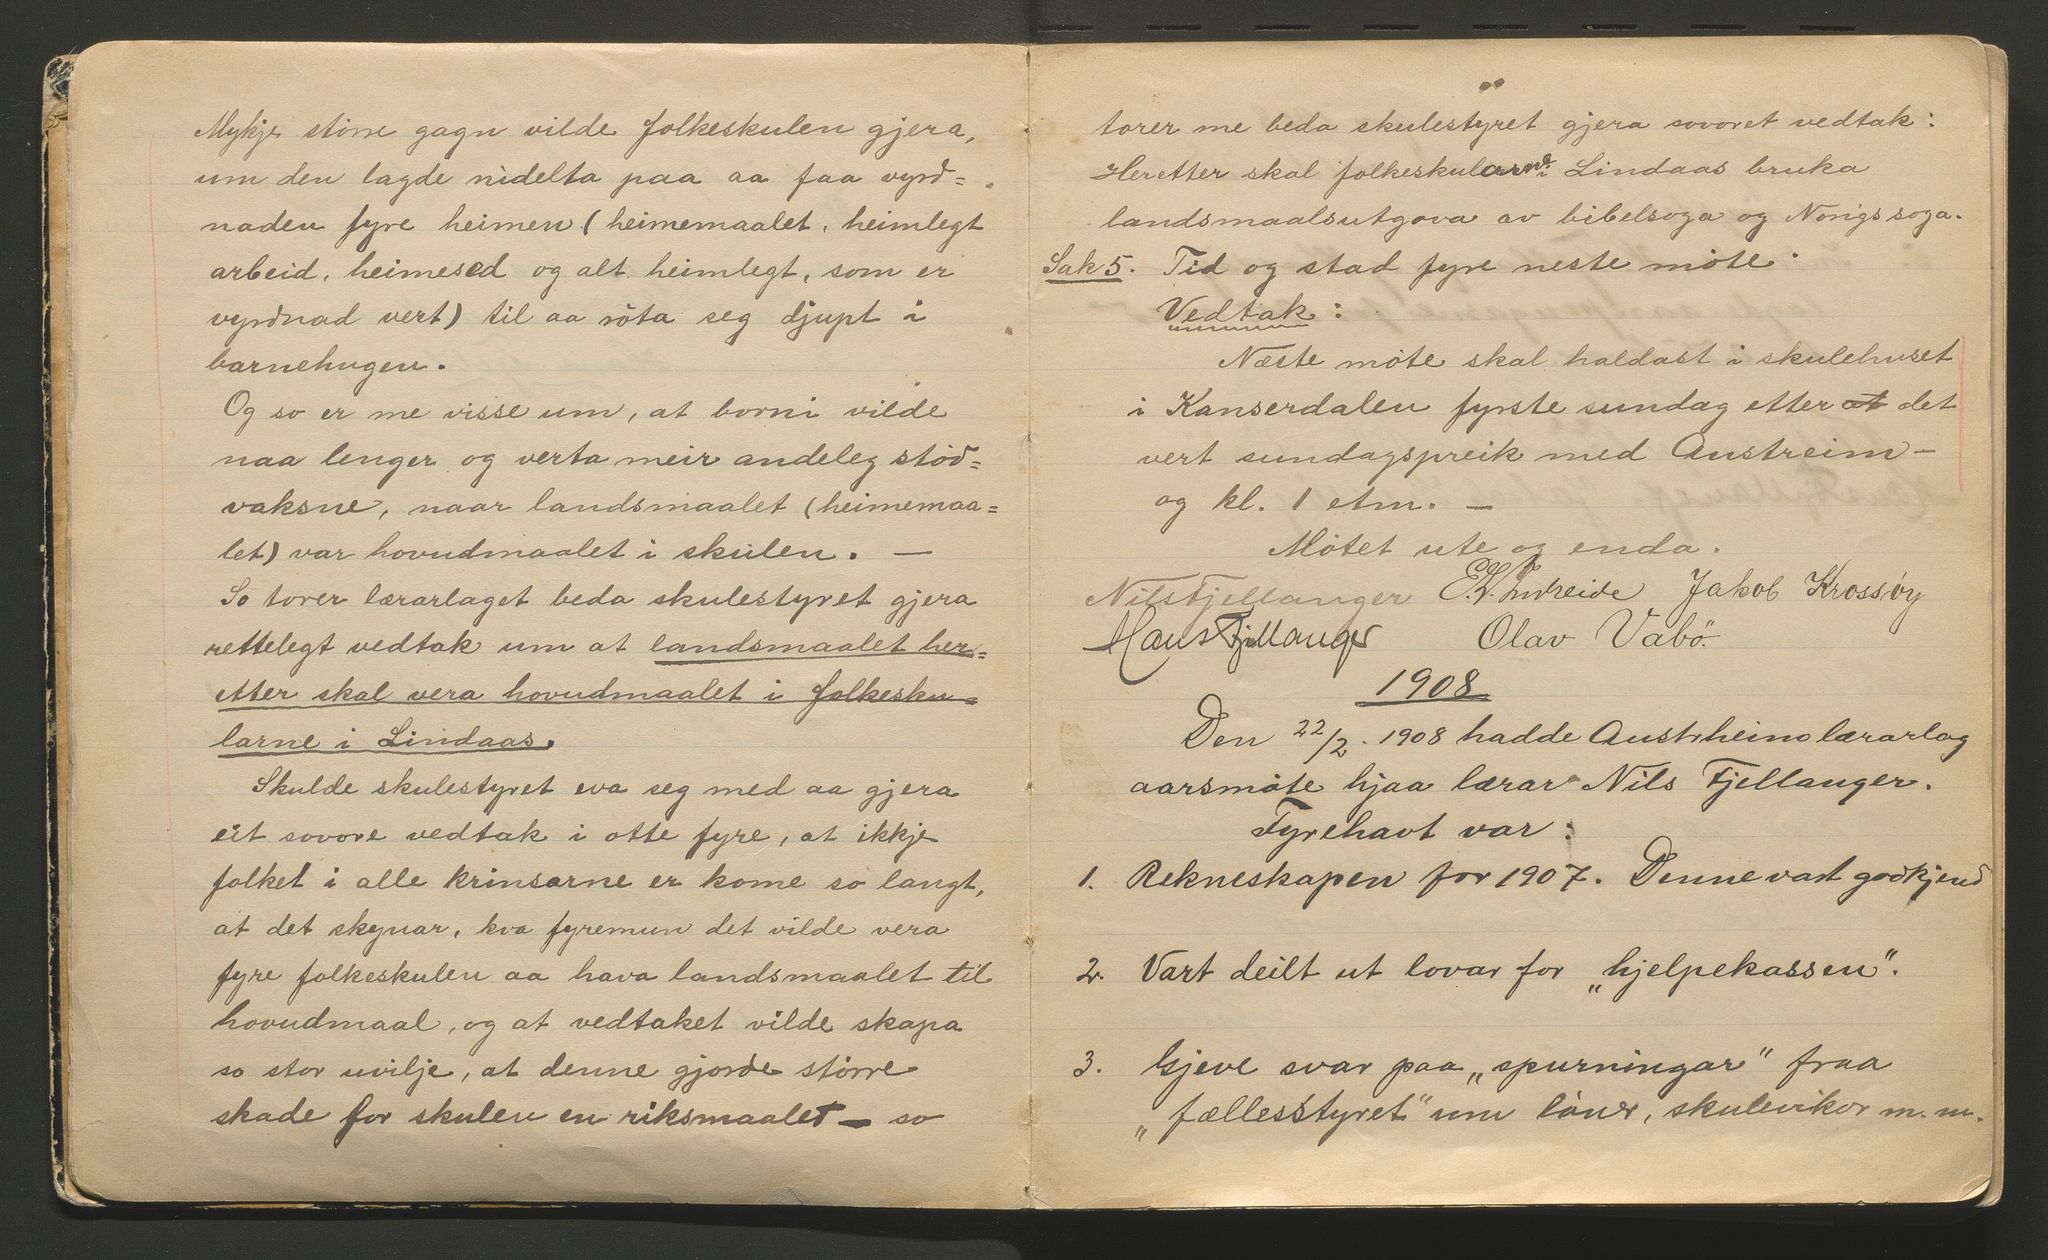 Mykje större gagn vilde folkeskulen gjera,
um den lagde nidelta paa aa faa vyrd=
naden fyre heimen (heimemaalet, heimlegt
arbeid, heimesed og alt heimlegt, som er
vyrdnad vert) til aa röta seg djupt i
barnehugen.
Og so er me visse um, at borni vilde
naa lenger og verta meir andeleg stöd=
vaksne, naar landsmaalet (heimemaa=
let) var hovudmaalet i skulen. —
So torer lærarlaget beda skulestyret gjera
rettelegt vedtak um at landsmaalet her=
etter skal vera hovudmaalet i folkesku=
larne i Lindaas.
Skulde skulestyret eva seg med aa gjera
eit sovore vedtak i otte fyre, at ikkje
folket i alle krinsarne er kome so langt,
at det skynar, kva fyremun det vilde vera
fyre folkeskulen aa hava landsmaalet til
hovudmaal, og at vedtaket vilde skapa
so stor uvilje, at denne gjorde större
skade for skulen en riksmaalet — so
torer me beda skulestyret gjera sovoret vedtak:
Heretter skal folkeskularne i Lindaas bruka
landsmaalsutgova av bibelsoga og Norigssoga.
Sak 5. Tid og stad fyre neste möte.
Vedtak:
Næste möte skal haldast i skulehuset
i Kanserdalen fyrste sundag etter at det
vert sundagspreik med Austreim —
og kl. 1 etm. —
Mötet ute og enda.
Nils Fjellanger E. V. Indreide Jakob Krossöy
Hans Fjellanger Olav Vabö.
1908
Den 22/2. 1908 hadde Austrheim lærarlag
aarsmöte hjaa lærar Nils Fjellanger.
Fyrehavt var:
1. Rekneskapen for 1907. Denne vart godkjend
2. Vart deilt ut lovar for „hjelpekassen".
3. Gjeve svar paa „spurningar" fraa
„fællesstyret" um löner, skulevikor m. m.